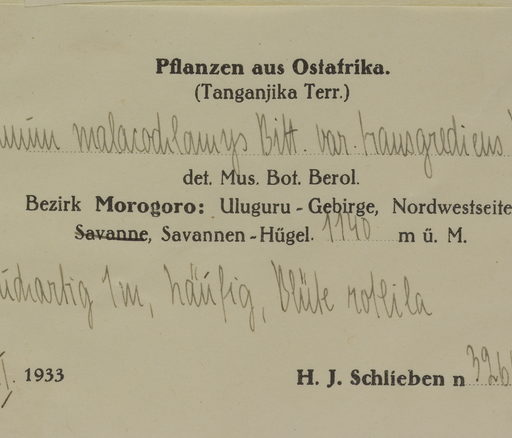 Pflanzen aus Ostafrika.
(Tanganjika Terr.)
malacochlamys Bitt. var. transgrediens
det. Mus. Bot. Berol.
Bezirk Morogoro: Uluguru-Gebirge, Nordwestseite
Savanne, Savannen-Hügel. 1140 m ü. M.
1m, häufig, Blüte rotlila
1933 H. J. Schlieben n